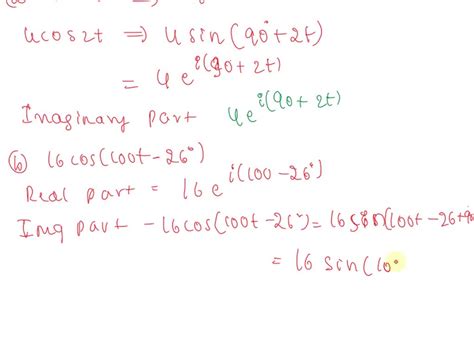 4cos2t ⟹ 4 sin(90°+2t)
= 4e^i(90+2t)
Imaginary part 4e^i(90+2t)
(b) 16 cos(100t-26°)
Real part = 16 e^i(100-26°)
Img part -16cos(100t-26°)=16 sin(100t-26+90
= 16 sin(10